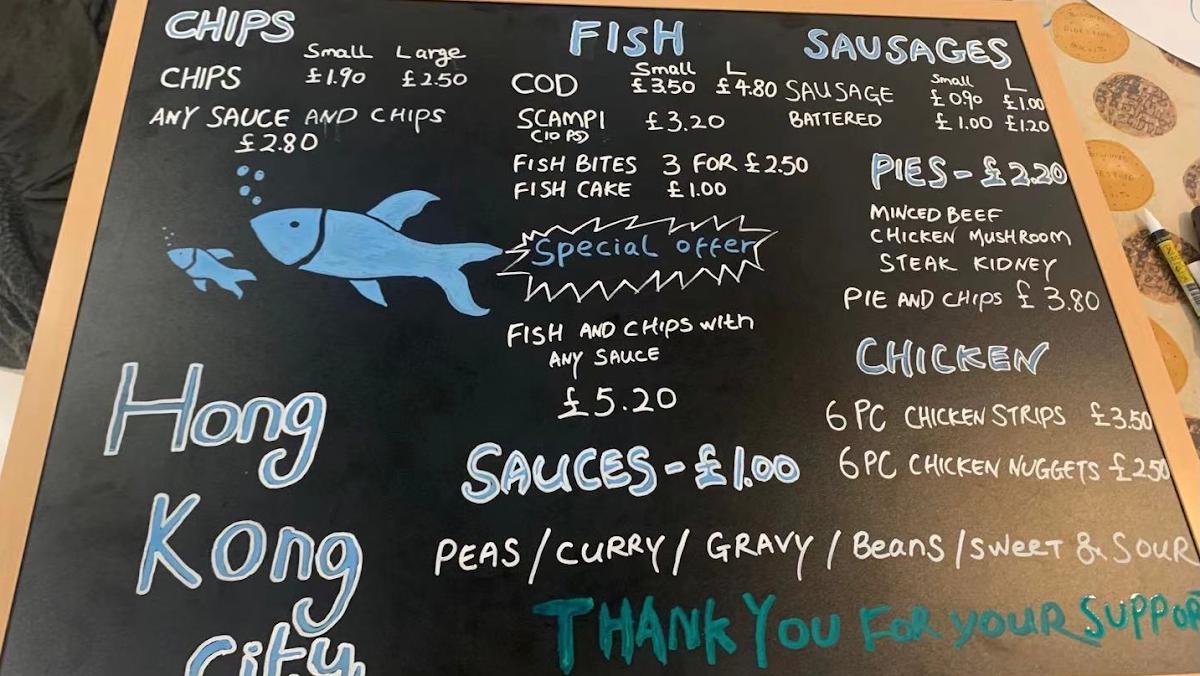 CHIPS
Small Large
CHIPS £1.90 £2.50
ANY SAUCE AND CHIPS
£2.80
FISH
Small L
COD £3.50 £4.80
SCAMPI £3.20
(10 PS)
FISH BITES 3 FOR £2.50
FISH CAKE £1.00
Special offer
FISH AND CHIPS with
ANY SAUCE
£5.20
SAUSAGES
Small L
SAUSAGE £0.90 £1.00
BATTERED £1.00 £1.20
PIES - £2.20
MINCED BEEF
CHICKEN MUSHROOM
STEAK KIDNEY
PIE AND CHIPS £3.80
CHICKEN
6 PC CHICKEN STRIPS £3.50
6 PC CHICKEN NUGGETS £2.50
SAUCES - £1.00
PEAS / CURRY / GRAVY / Beans / SWEET & SOUR
THANK YOU FOR YOUR SUPPOR
Hong
Kong
City